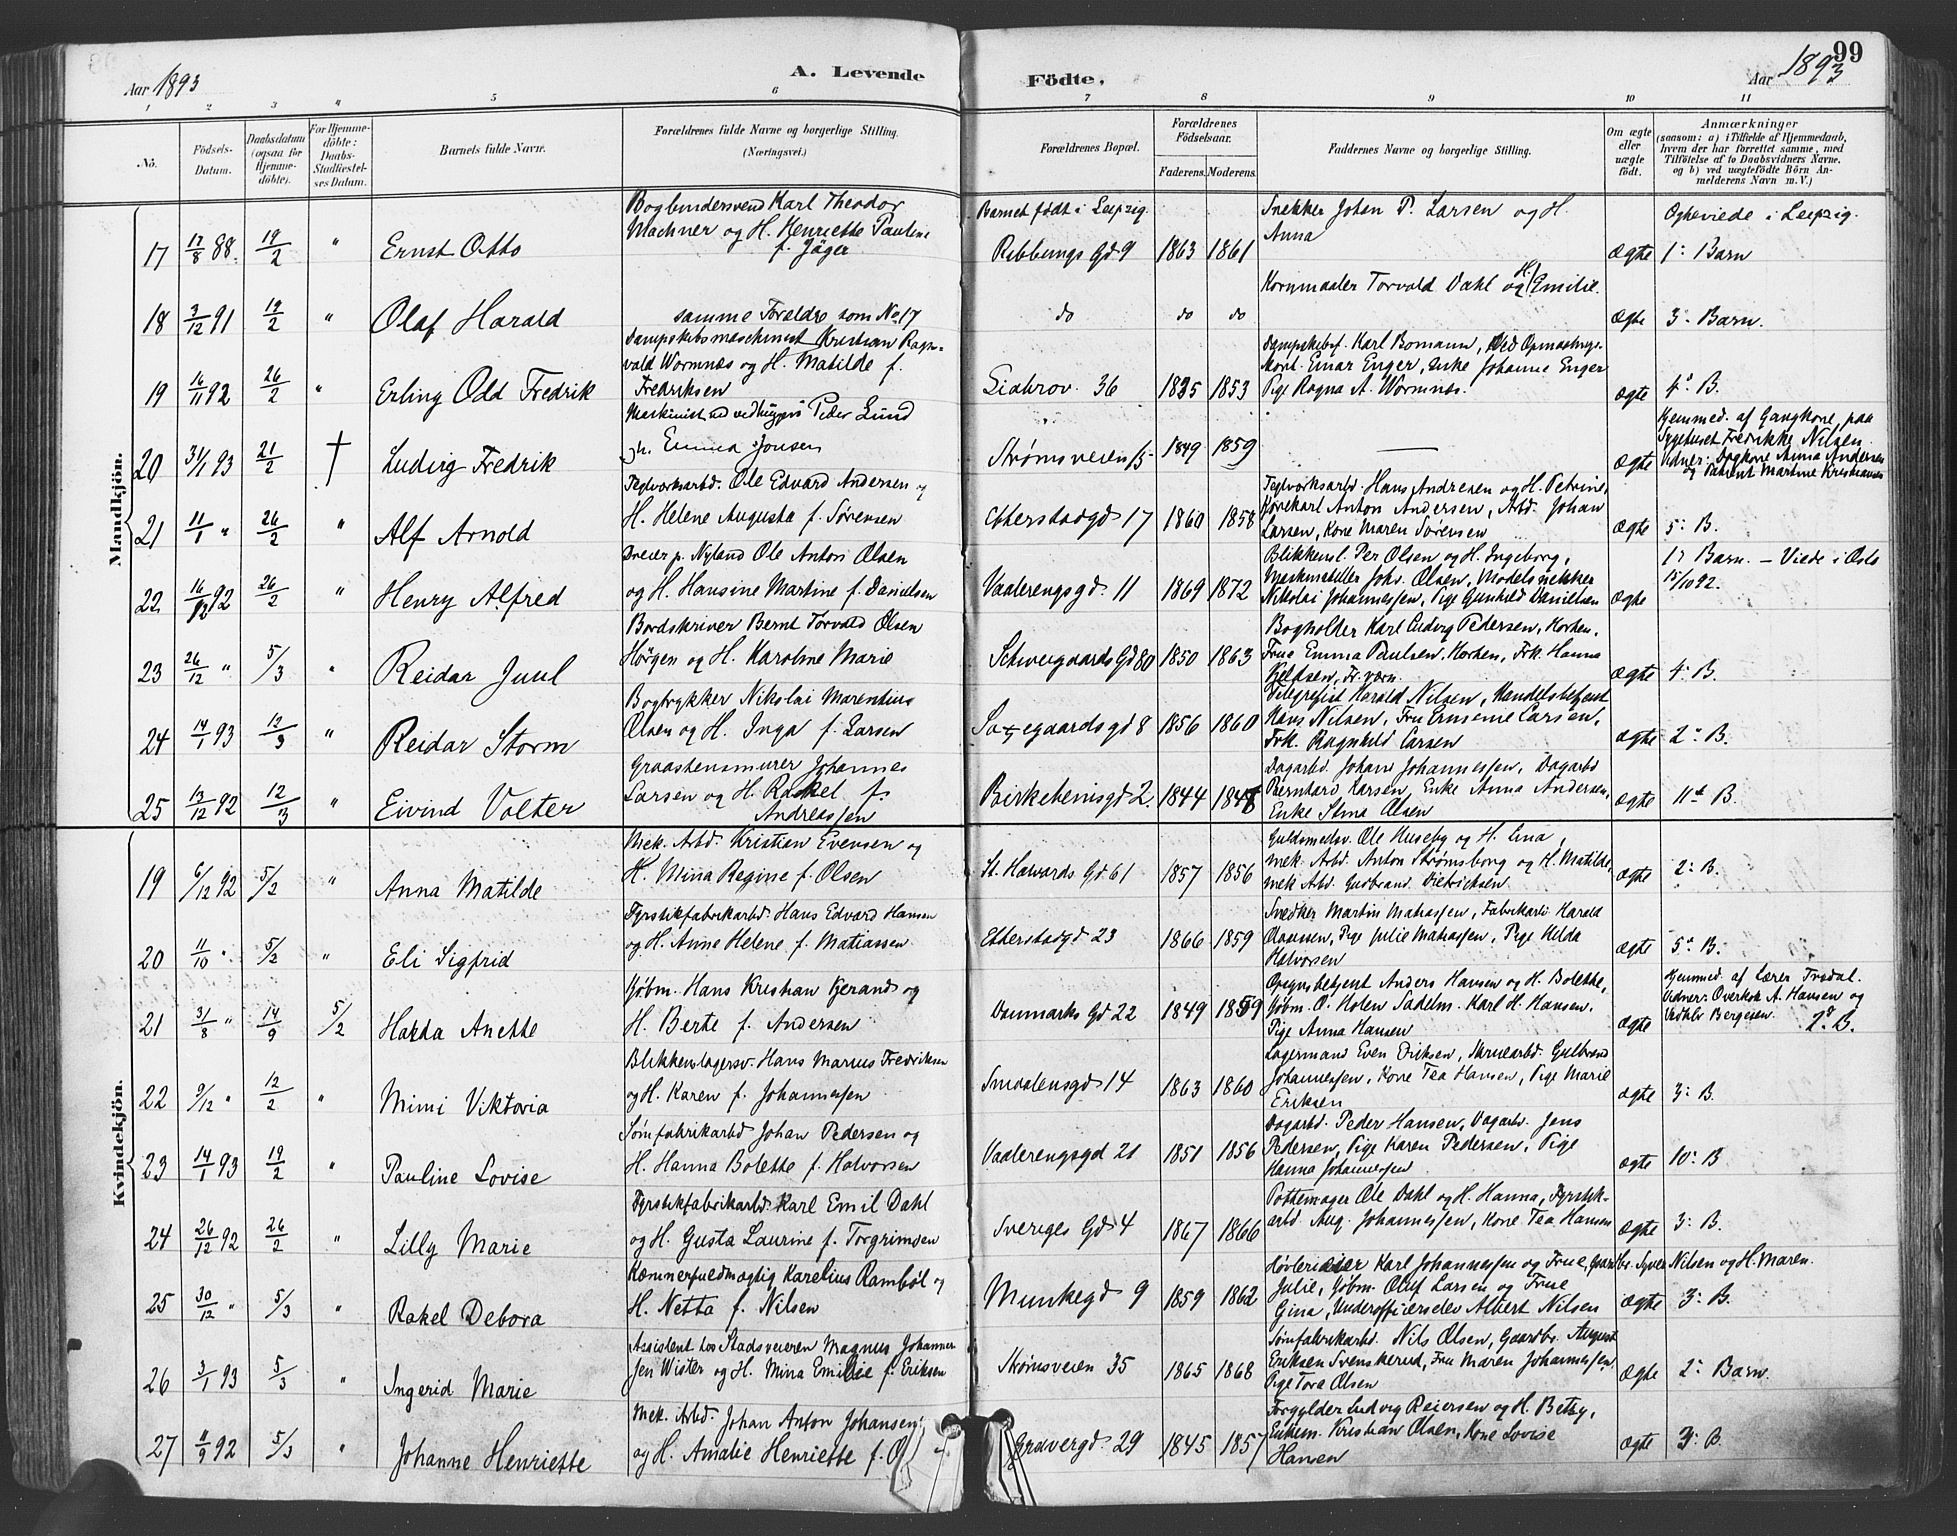 99
Aar 1893
A. Levende
Födte.
Aar 1893
1 2 3 " 5 6 7 8 9 10 11
No.
Födsels-Datum.
Daabsdatum (ogsaa for Hjemmedöbte).
For Hjemmedöbte: Daabs-Stadfæstelses Datum.
Barnets fulde Navn.
Forældrenes fulde Navne og borgerlige Stilling. (Næringsvei.)
Forældrenes Bopæl.
Forældrenes Födselsaar.
Faderens. Moderens.
Faddernes Navne og borgerlige Stilling.
Om ægte eller uægte födt.
Anmærkninger
(saasom: a) i Tilfælde af Hjemmedaab, hvem der har forrettet samme, med Tilföielse af to Daabsvidners Navne. og b) ved uægtefödte Börn Anmelderens Navn m. V.)
Mandkjön.
17 17/8 88. 19/2 " Ernst Otto
Bogbindersvend Karl Theodor
Machner og H. Henriette Pauline
f. Jäger
Barnet født i Leipzig.
Ribbungs Gd 9 1863 1861
Snekker Johan P. Larsen og H.
Anna
ægte
Ogsviede i Leipzig.
1: Barn
18 3/12 91 19/2 " Olaf Harald
samme Forældre som No 17
do do do
Kornmaaler Torvald Dahl og H. Emilie.
ægte 3: Barn.
19 16/11 92 26/2 " Erling Odd Fredrik
Dampskibsmaschinist Kristian Ragn-
vald Wormnæs og H. Matilde f.
Fredriksen
36 1835 1853
Dampskibsf. Karl Bomann,
Kont. Einar Enger, Enke Johanne Enger
Pige Ragna A. Wormnæs.
ægte 4: B.
20 31/1 93 21/2 † Ludvig Fredrik
Maskinist ved vedhuggeri Peder Lund
H. Emma Jonsen
Strømsveien 15 1849 1859 —
ægte
Hjemmed. af Gangkone paa
Sygehuset Fredrikke Nilsen.
Vidner: Dagkone Anna Andersen
og Patient Martine Kristiansen
21 11/1 " 26/2 " Alf Arnold
Teglværksarbd. Ole Edvard Andersen og
H. Helene Augusta f. Sørensen
Etterstadgd 17 1860 1858
Teglværksarbd. Hans Andresen og H. Petrine,
Kjørekarl Anton Andersen, Arbd. Johan
Larsen, Kone Maren Sørensen
ægte 5: B.
22 16/12 92 26/2 " Henry Alfred
Dreier p. Nyland Ole Anton Olsen
og H. Hansine Martine f. Danielsen
Vaalerengsgd. 11 1869 1872
Blikkensl. Per Olsen og H. Ingeborg,
Johs. Olsen, Modelsnekker
Nikolai Johannessen, Pige Gunhild Danielsen
ægte
1: Barn. — Viede i Oslo
15/10 92.
23 26/12 " 5/3 " Reidar Juul
Bordskriver Bernt Torvald Olsen
Hørgen og H. Karoline Marie
Schweigaards Gd 80 1850 1863
Bogholder Karl Ludvig Pedersen, Horten,
Frue Emma Paulsen, Horten, Frk. Hanna
ægte 4: B.
24 14/1 93 12/3 " Reidar Storm
Bogtrykker Nikolai Marentius
Olsen og H. Inga f. Larsen
Saxegaardsgd 8 1856 1860
Telegrafist Harald Nilsen, Handelsbetjent
Hans Nilsen, Fru Ernsine Larsen,
Frk. Ragnhild Larsen
ægte 2: B.
25 13/12 92 12/3 " Eivind Valter
Graastensmurer Johannes
Larsen og H. Rakel f.
Andreassen
Birkebeinsgd 2. 1844 1848
Dagarbd. Johan Johannessen, Dagarbd
Bernhard Larsen, Enke Anna Andersen,
Enke Stina Olsen
ægte 11te B.
Kvindekjön.
19 6/12 92 5/2 " Anna Matilde
Mek. Arbd. Kristian Evensen og
H. Mina Regine f. Olsen
St. Halvards Gd 61 1857 1856
Guldsmedsv. Ole Huseby og H. Lina,
Mek. Arbd. Anton Strømsborg og H. Matilde,
Mek Arbd. Gudbrand Dietrichsen
ægte 2: B.
20 11/10 " 5/2 " Eli Sigfrid
Fyrstikfabrikarbd. Hans Edvard Hansen
og H. Anne Helene f. Matiassen
Etterstadgd 23 1866 1859
Snedker Martin Matiassen, Fabrikarb Harald
Olausen, Pige Julie Matiassen, Pige Hilda
Halvorsen
ægte 5: B.
21 31/8 " 14/9 5/2 Harda Anette
Kjøbm. Hans Kristian Kjerand og
H. Berte f. Andersen
Danmarks Gd 22 1849 1859
Opsynsbetjent Anders Hansen og H. Bolette,
Kjøbm. O. Holen Sadelm. Karl H. Hansen,
Pige Anna Hansen
ægte
Hjemmed. af Lærer Tredal.
Vidner: Overkok A. Hansen og
Bergesen. 2: B.
22 9/12 " 12/2 " Mimi Viktoria
Blikkenslagersv. Hans Marius Fredriksen
og H. Karen f. Johannessen
Smaalensgd 14 1863 1860
Lagermand Even Eriksen, Skruearbd. Gulbrand
Johannessen, Kone Tea Hansen, Pige Marie
Eriksen
ægte 3: B.
23 14/1 93 19/2 " Pauline Lovise
Sømfabrikarbd Johan Pedersen og
H. Hanna Bolette f. Halvorsen
Vaalerengsgd 21 1851 1856
Dagarbd. Peder Hansen, Dagarbd. Jens
Pedersen, Pige Karen Pedersen, Pige
Hanna Johannessen
ægte 10: B
24 26/12 92 26/2 " Lilly Marie
Fyrstikfabrikarbd. Karl Emil Dahl
og H. Gusta Laurine f. Torgrimsen
Sveriges Gd 4 1867 1866
Pottemager Ole Dahl og H. Hanna, Fyrstik-
arbd. Aug. Johannessen, Kone Tea Hansen
ægte 3: B.
25 30/12 " 5/3 " Rakel Debora
Kæmnerfuldmægtig Karelius Rambøl og
H. Netta f. Nilsen
Munkegd 9 1859 1862
Høvlerieier Karl Johannessen og Frue, Gaardbr. Syver Nilsen og H. Maren.
Julie, Kjøbm. Oluf Larsen og Frue
Gina, Underofficerselev Albert Nilsen
ægte 3: B.
26 3/1 93 5/3 " Ingerid Marie
Assistent hos Stadsveieren Magnus Johannes-
sen Wister og H. Mina Emilie f. Eriksen
Strømsveien 35 1865 1868
Sømfabrikarbd. Nils Olsen, Gaardbr. August
Eriksen Svenskerud, Fru Maren Johannessen,
Pige Tora Olsen
ægte 2: Barn.
27 11/9 92 5/3 " Johanne Henriette
Mek. Arbd. Johan Anton Johansen
og H. Amalie Henriette f. O
Grøvergd. 29 1845 1857
Forgylder Ludvig Reiersen og H. Betsy,
Kristian Olsen, Kone Lovise
Hansen
ægte 3: B.